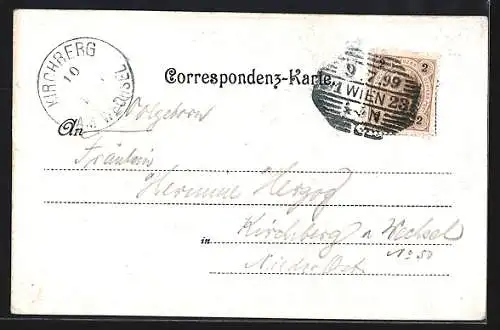 KIRCHBERG
10
AM WECHSEL
Correspondenz-Karte.
2
9.7.99
1 WIEN 23
N
2
An
Fräulein
Hermine Herzog
Kirchberg a Wechsel
No 50
in Nieder Öst.